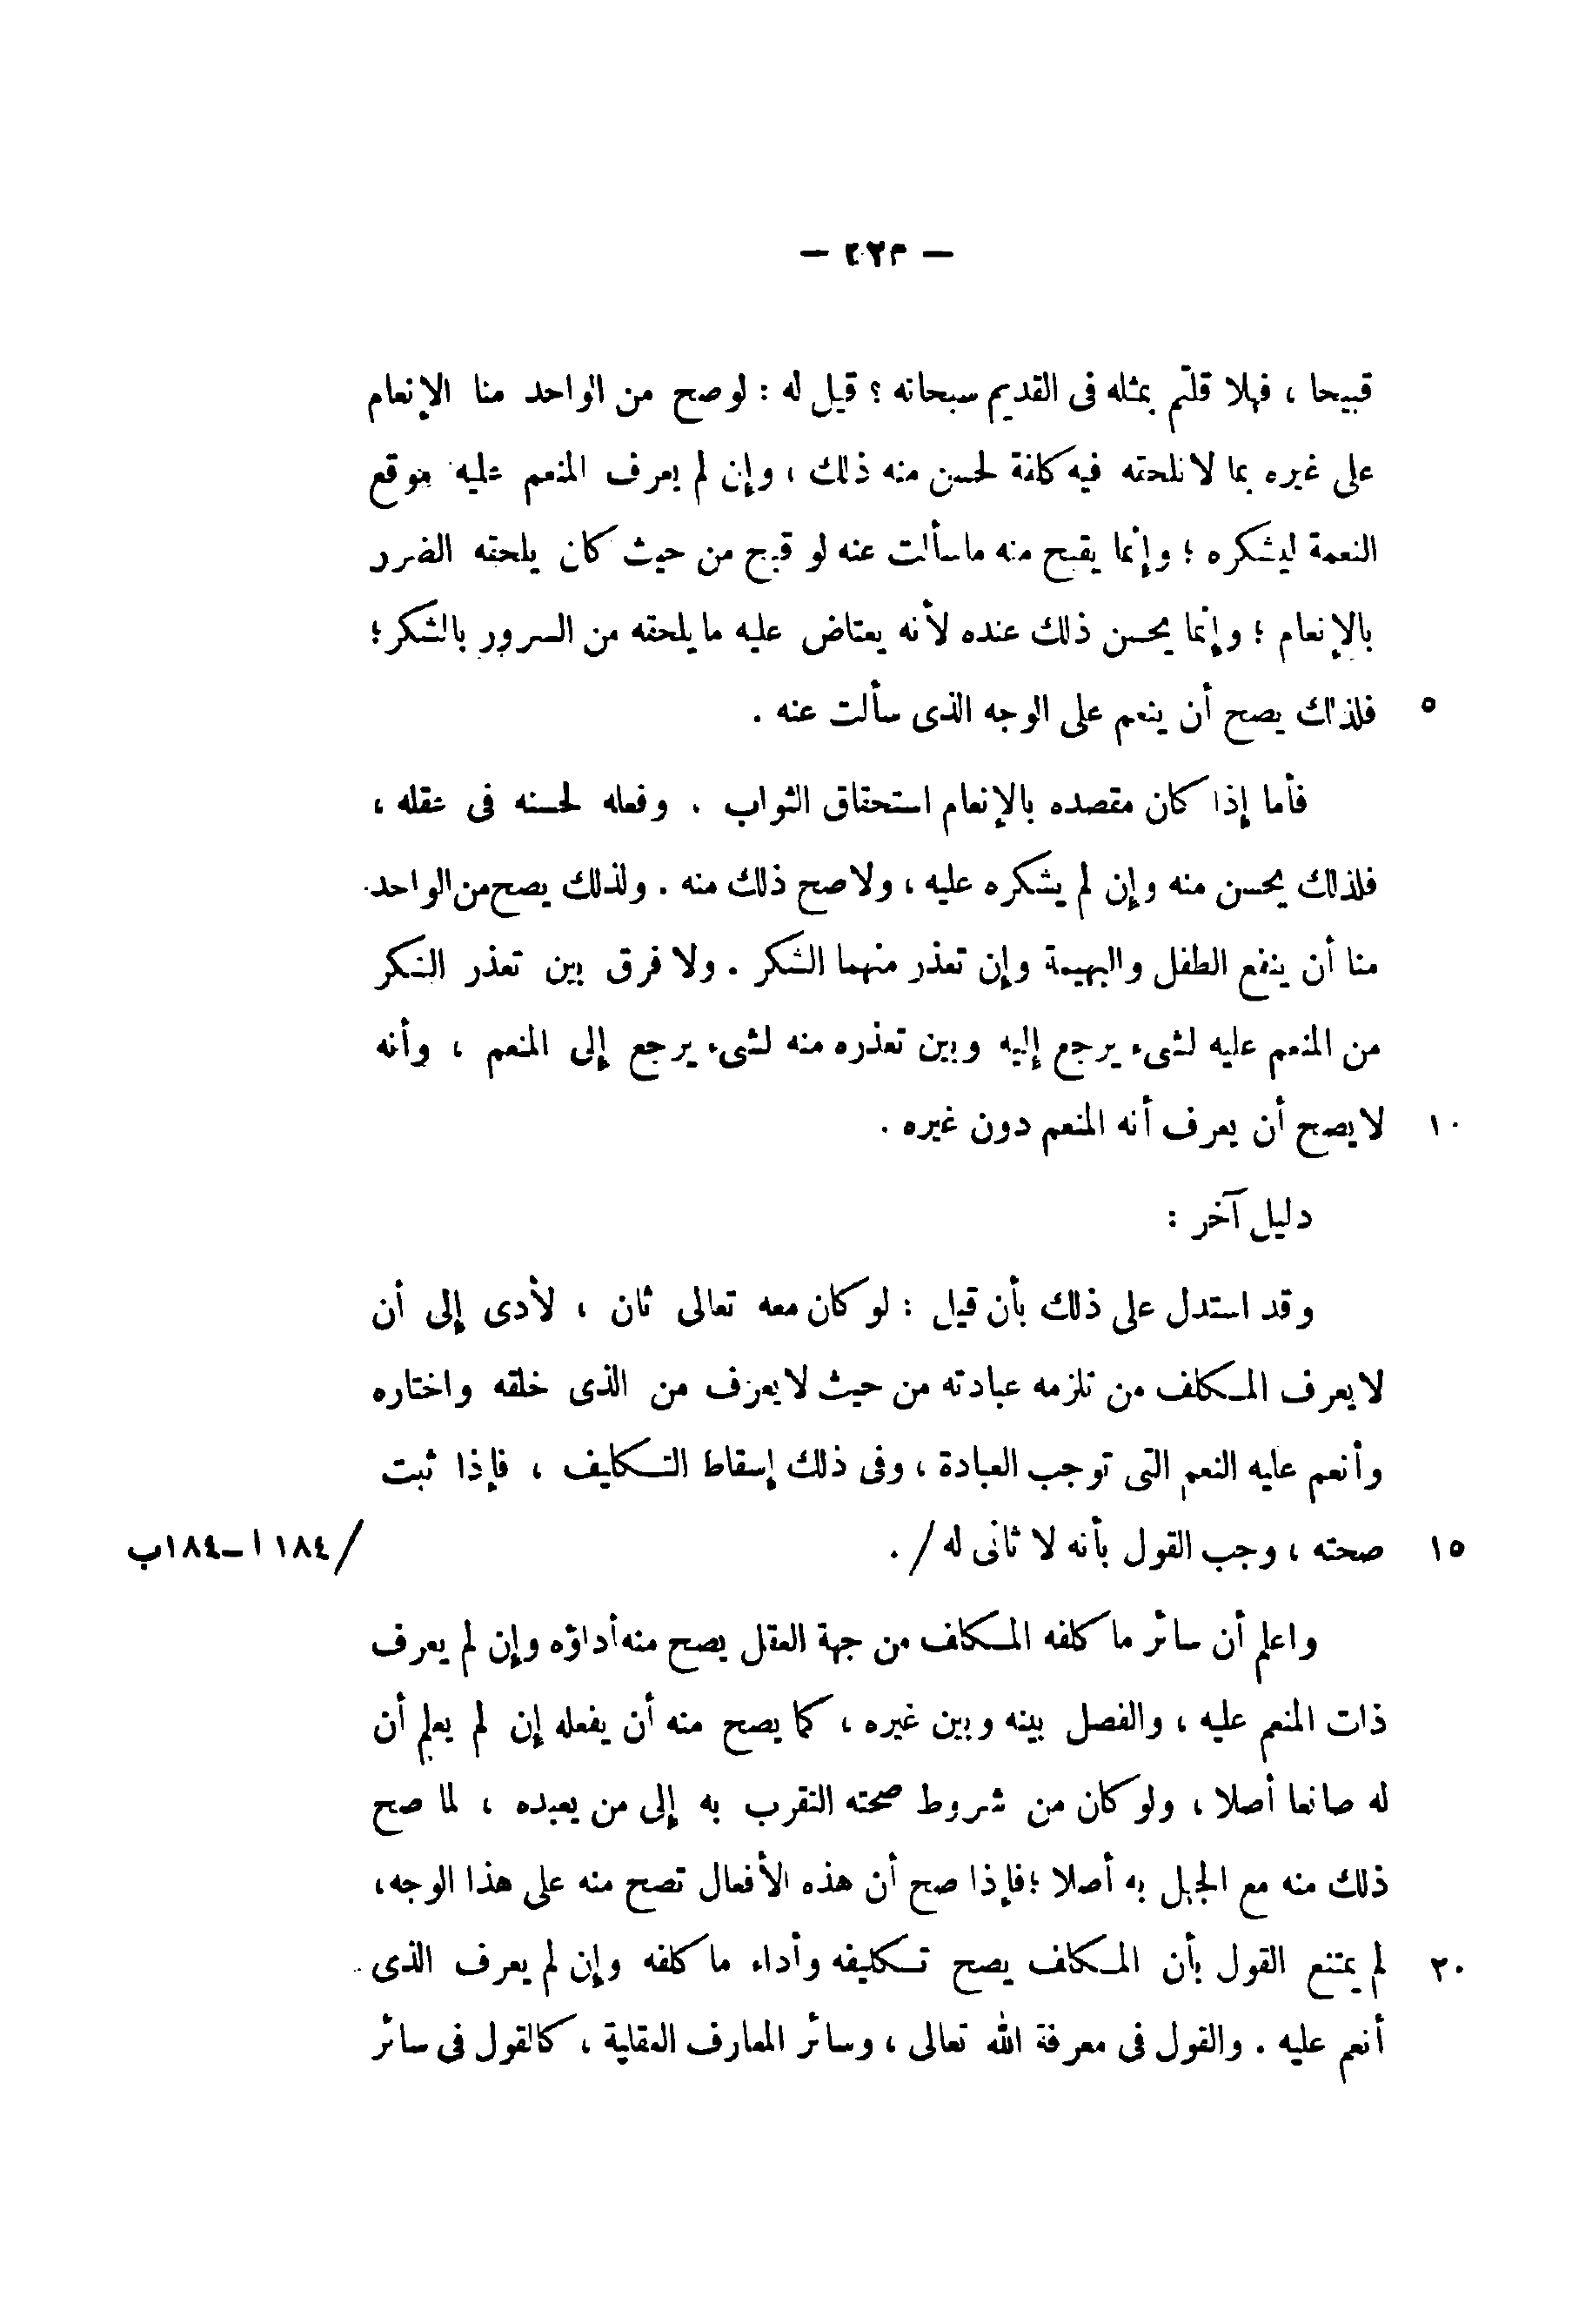 قبيحا ، فهلا قلتم بمثله فى القديم سبحانه ؟ قيل له : لو صح من الواحد منا الإنعام
على غيره بما لا تلحقه فيه كلفة لحسن منه ذلك ، وإن لم يعرف المنعم عليه موقع
النعمة ليشكره ؛ وإنما يقبح منه ما سألت عنه لو قبح من حيث كان يلحقه الضرر
بالإنعام ؛ وإنما يحسن ذلك عنده لأنه يعتاض عليه ما يلحقه من السرور بالشكر ؛
٥ فلذلك يصح أن ينعم على الوجه الذى سألت عنه .
فأما إذا كان مقصده بالإنعام استحقاق الثواب . وفعله لحسنه فى عقله ،
فلذلك يحسن منه وإن لم يشكره عليه ، ولا صح ذلك منه . ولذلك يصح من الواحد
منا أن ينفع الطفل والبهيمة وإن تعذر منهما الشكر . ولا فرق بين تعذر الشكر
من المنعم عليه لشىء يرجع إليه وبين تعذره منه لشىء يرجع إلى المنعم ، وأنه
١٠ لا يصح أن يعرف أنه المنعم دون غيره .
دليل آخر :
وقد استدل على ذلك بأن قيل : لو كان معه تعالى ثان ، لأدى إلى أن
لا يعرف المكلف من تلزمه عبادته من حيث لا يعرف من الذى خلقه واختاره
وأنعم عليه النعم التى توجب العبادة ، وفى ذلك إسقاط التكليف ، فإذا ثبت
١٥ صحته ، وجب القول بأنه لا ثانى له / . /١٨٤ ا ــ ١٨٤ب
واعلم أن سائر ما كلفه المكلف من جهة العقل يصح منه أداؤه وإن لم يعرف
ذات المنعم عليه ، والفصل بينه وبين غيره ، كما يصح منه أن يفعله إن لم يعلم أن
له صانعا أصلا ، ولو كان من شروط صحته التقرب به إلى من يعبده ، لما صح
ذلك منه مع الجهل به أصلا ؛ فإذا صح أن هذه الأفعال تصح منه على هذا الوجه ،
٢٠ لم يمتنع القول بأن المكلف يصح تكليفه وأداء ما كلفه وإن لم يعرف الذى
أنعم عليه . والقول فى معرفة الله تعالى ، وسائر المعارف العقلية ، كالقول فى سائر